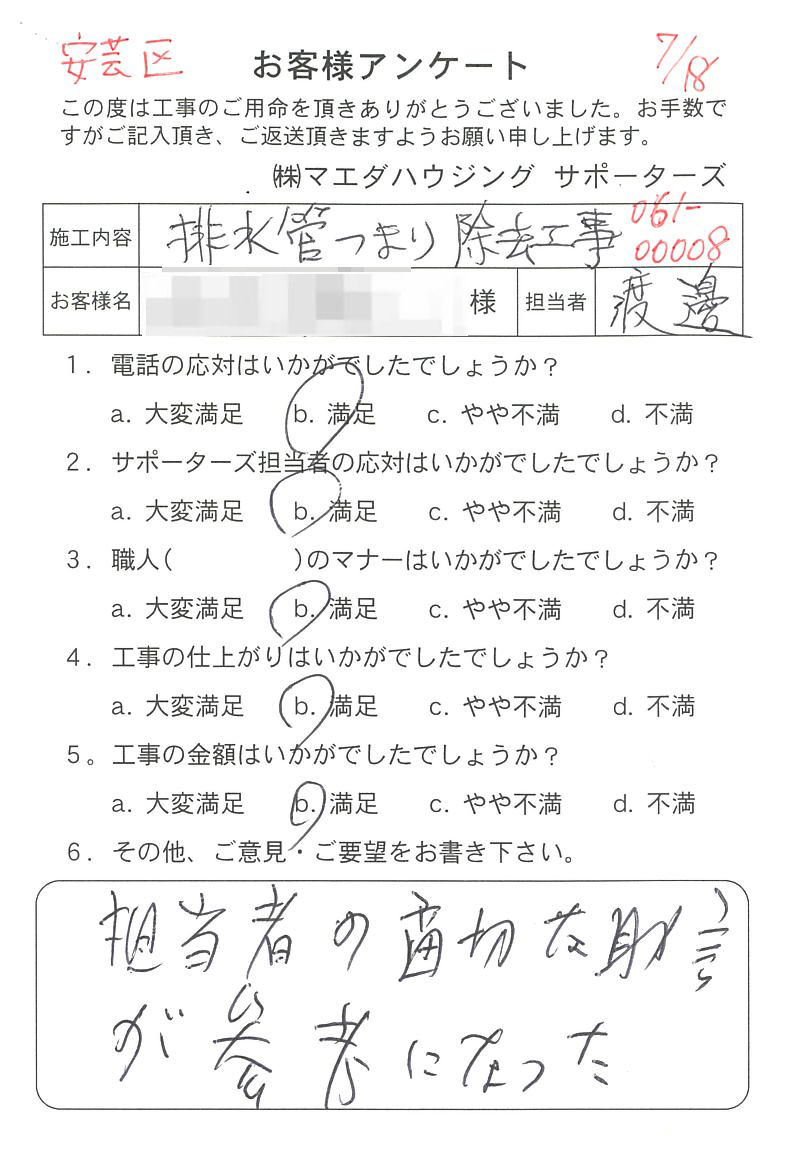 安芸区 お客様アンケート 7/18
この度は工事のご用命を頂きありがとうございました。お手数で
すがご記入頂き、ご返送頂きますようお願い申し上げます。
㈱マエダハウジング サポーターズ
施工内容 排水管つまり除去工事 061-
00008
お客様名 様 担当者 渡邊
1. 電話の応対はいかがでしたでしょうか?
a. 大変満足 b. 満足 c. やや不満 d. 不満
2. サポーターズ担当者の応対はいかがでしたでしょうか?
a. 大変満足 b. 満足 c. やや不満 d. 不満
3. 職人( )のマナーはいかがでしたでしょうか?
a. 大変満足 b. 満足 c. やや不満 d. 不満
4. 工事の仕上がりはいかがでしたでしょうか?
a. 大変満足 b. 満足 c. やや不満 d. 不満
5。工事の金額はいかがでしたでしょうか?
a. 大変満足 b. 満足 c. やや不満 d. 不満
6. その他、ご意見・ご要望をお書き下さい。
担当者の適切な助言
が参考になった